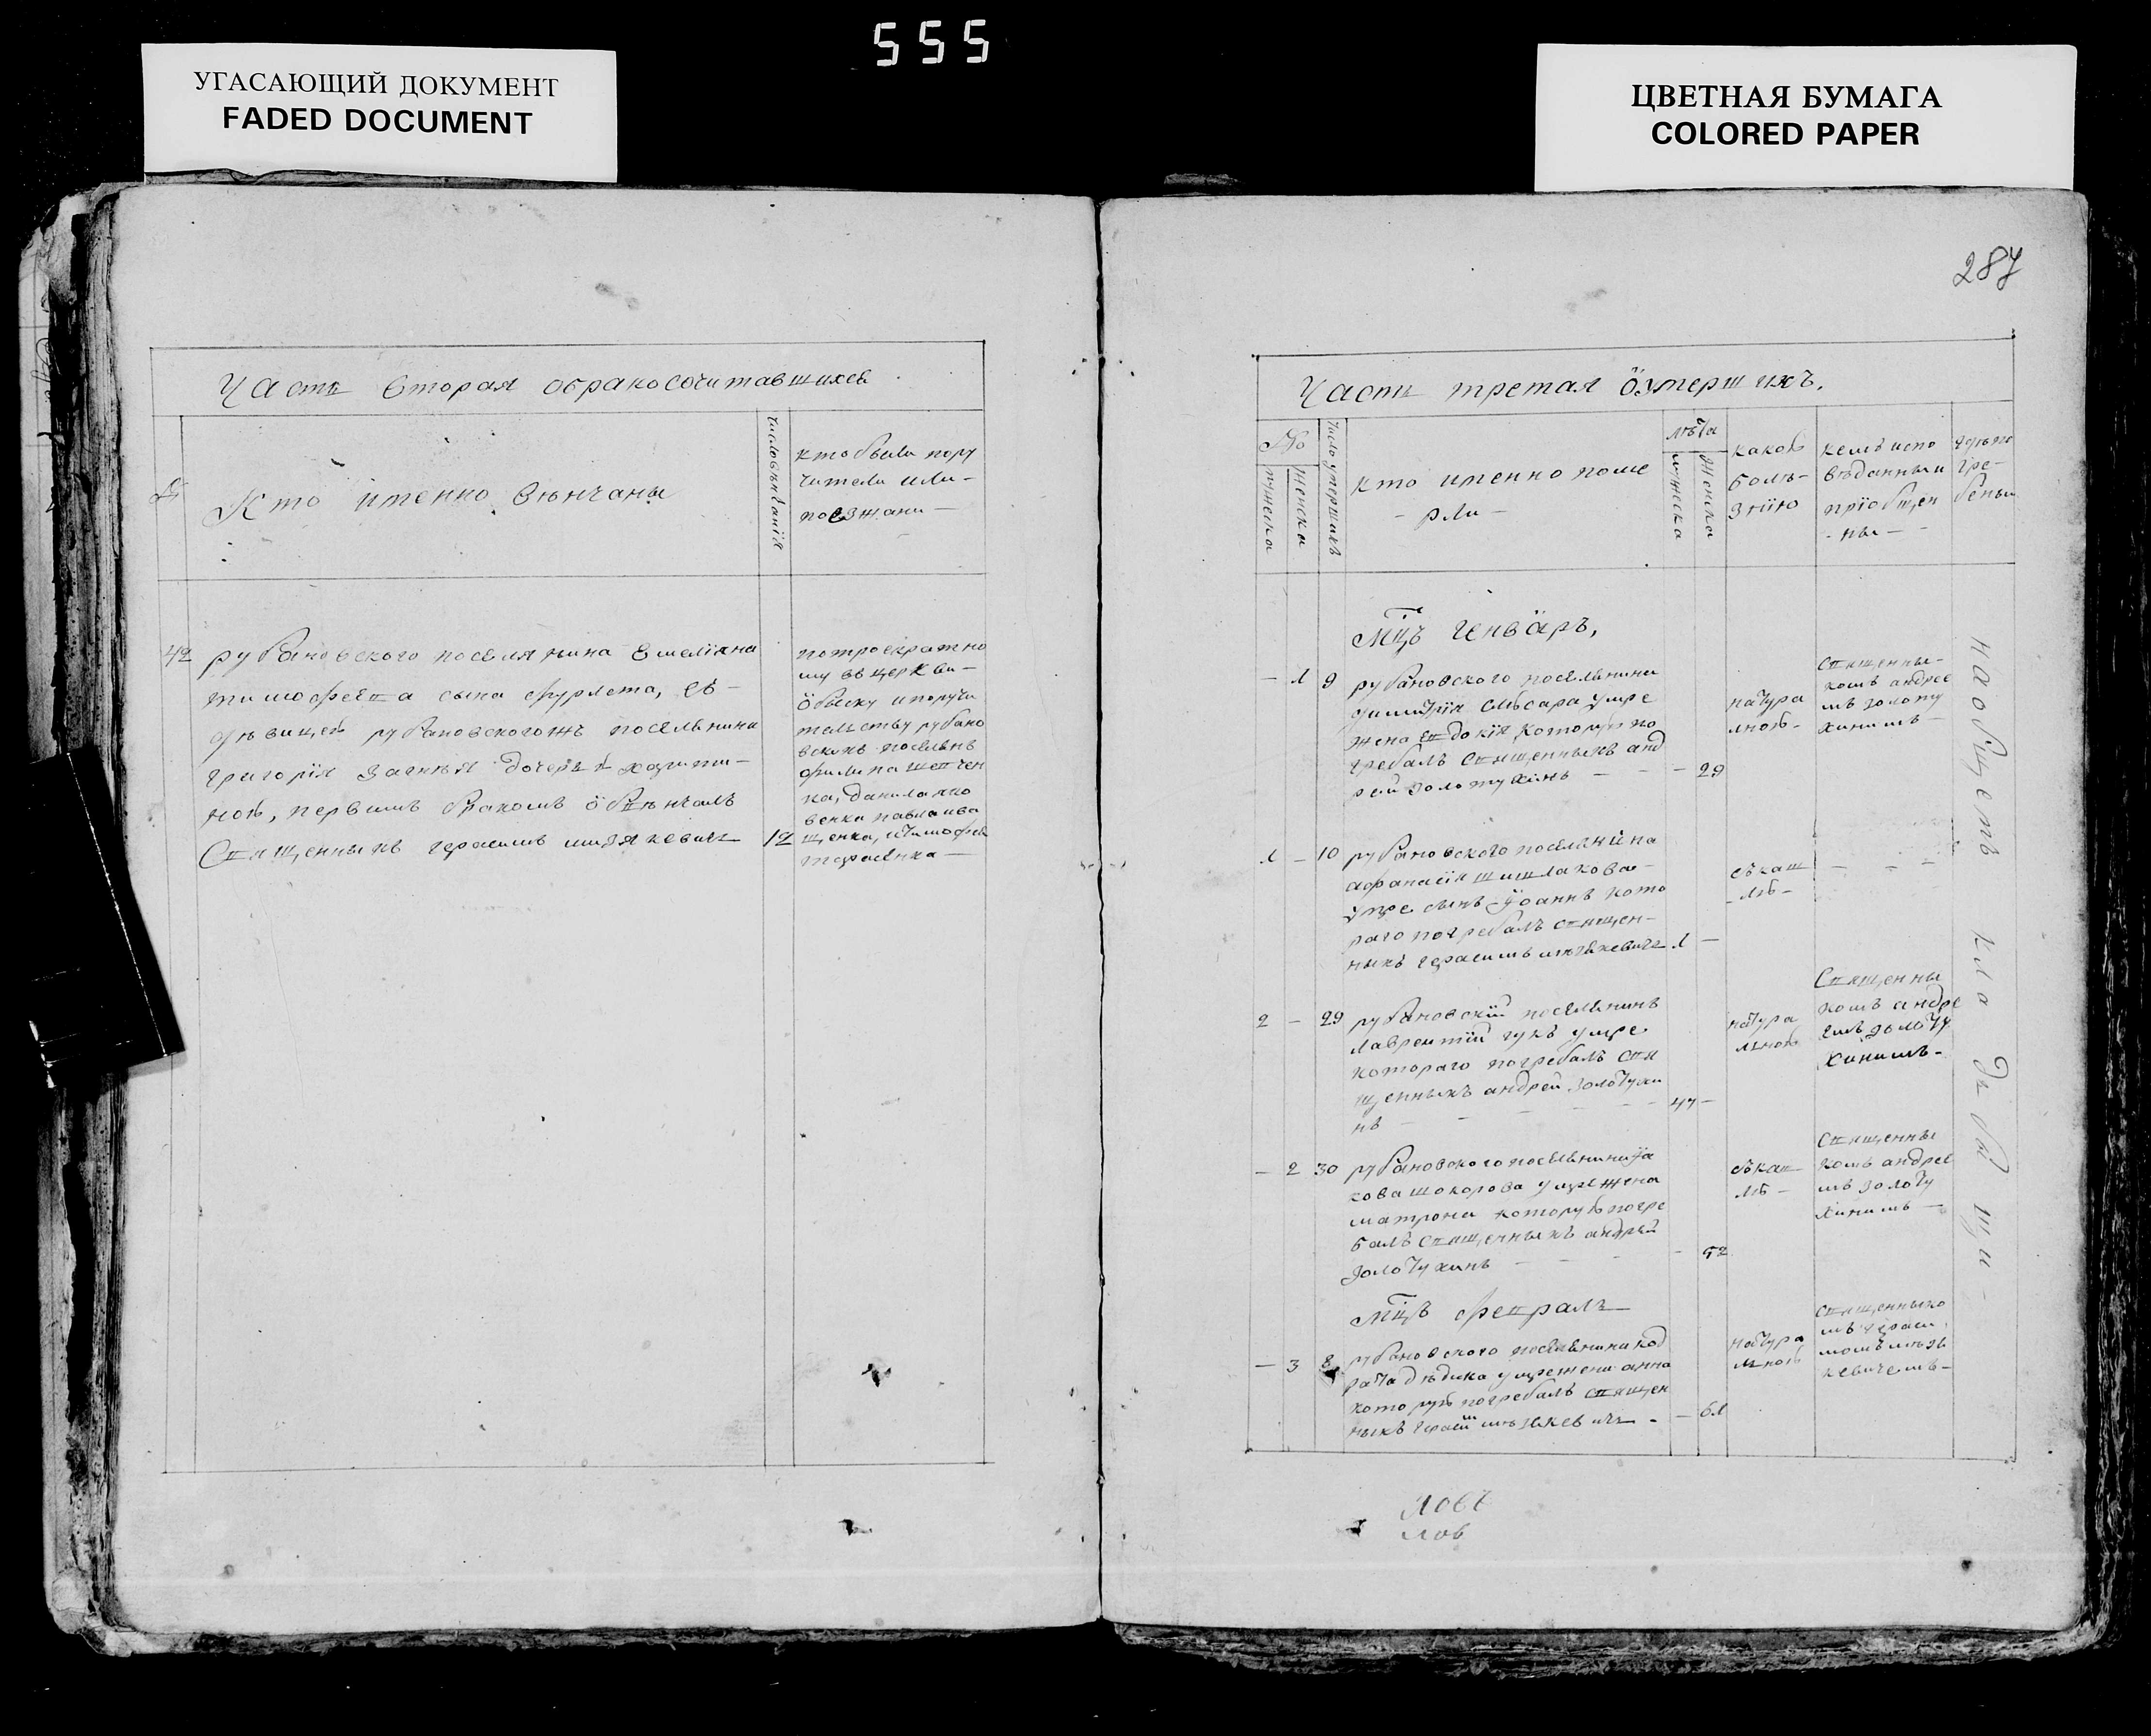 555
УГАСАЮЩИЙ ДОКУМЕНТ
FADED DOCUMENT
ЦВЕТНАЯ БУМАГА
COLORED PAPER
Часть вторая обракосочитавшихся
№
Кто именно вѣнчаны
число вѣнчанія
кто были пору
чители или -
поезжани -
42
рубановского поселянина Емеліяна
тимофеева сына фурлета, съ -
дѣвицей рубановскогожъ поселянина
григорія
дочерью харити -
ною, первымъ бракомъ обвѣнчалъ
Священникъ герасимъ
12
потроекратно
му въ церкви -
обыску и поручи
тельству рубано
вскихъ поселянъ
филипа шевчен
ка, данила яко
венка павла ива
щенка, и тимофея
тарасенка -
287
Часть третая о умершихъ.
№
мужеска
женска
число умершихъ
кто именно поме
- рли -
лѣта
мужеска
женска
какою
болѣ-
знію
кемъ испо
вѣданы и
пріобщен
- ны -
гдѣ по
гре-
бены
Мцъ Генваръ,
- 1 9 рубановского поселянина
димитрія слѣсара умре
жена евдокія которую по
гребалъ священникъ анд
рей золотухинъ - - - 29
натура
лною -
священни-
комъ андрее
мъ золоту
хинимъ -
1 - 10 рубановского поселянина
афанасія шишлакова -
умре сынъ іоаннъ кото
раго погребалъ священ-
никъ герасимъ
1 -
съ каш
лю -
- - -
2 - 29 рубановскій поселянинъ
лаврентій гукъ умре
котораго погребалъ свя
щенникъ андрей золотухи
нъ - - - - - 47 -
натура
лною
Священни
комъ андре
емъ золоту
хинимъ -
- 2 30 рубановского поселянина іа
кова шокорова умре жена
матрона которую погре
балъ священникъ андрей
золотухинъ - - - - 52
съ каш
лю -
Священни
комъ андрее
мъ золоту
хинимъ -
Мцъ февраль
- 3 8 рубановского поселянина код
рата дѣдика умре жена анна
которую погребалъ священ
никъ герасим
- - 61
натура
лною
священнико
мъ гераси
момъ
кевичемъ -
на общемъ кладбищи -